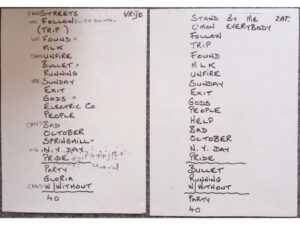 VRIJD
STREETS
FOLLOW
(TRIP)
FOUND x
MLK
UNFIRE
BULLET x
RUNNING
SUNDAY
EXIT
GODS x
ELECTRIC CO
PEOPLE
BAD
OCTOBER
SPRINGHILL x
N.Y. DAY
PRIDE
PARTY
GLORIA
W/WITHOUT
40
STAND BY ME ZAT.
C'MON EVERYBODY
FOLLOW
TRIP
FOUND
MLK
UNFIRE
SUNDAY
EXIT
GODS
PEOPLE
HELP
BAD
OCTOBER
N.Y. DAY
PRIDE
BULLET
RUNNING
W/WITHOUT
PARTY
40